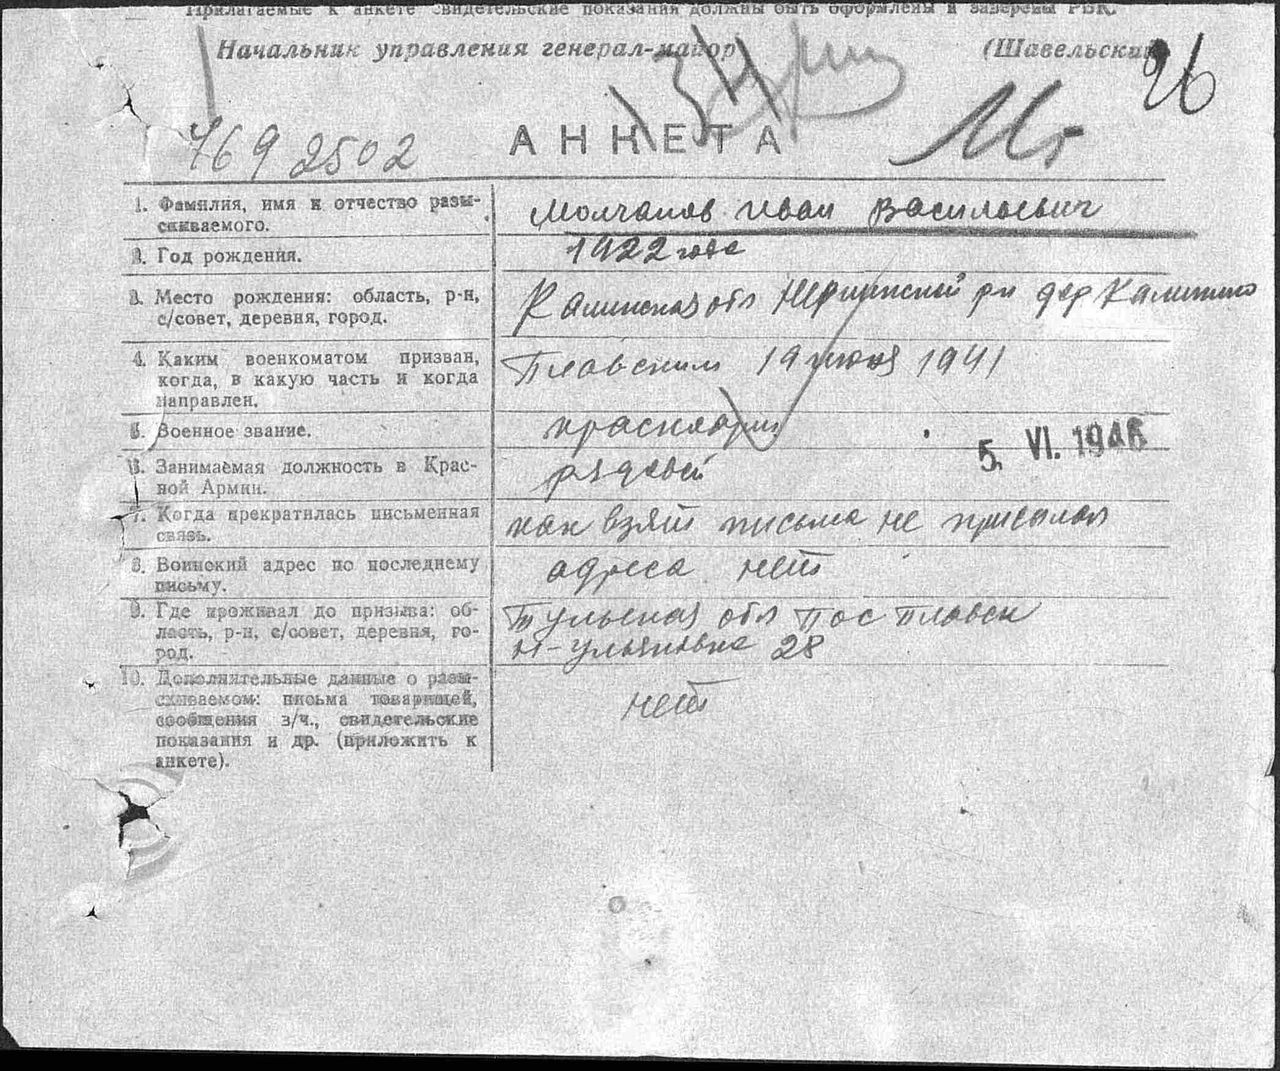 Прилагаемые к анкете свидетельские показания должны быть оформлены и заверены РВК.
Начальник управления генерал-майор (Шавельский)
96
7692502 АНКЕТА
1. Фамилия, имя и отчество разы-
скиваемого.
Молчанов Иван Васильевич
2. Год рождения.
1922 года
3. Место рождения: область, р-н,
с/совет, деревня, город.
обл р дер
4. Каким военкоматом призван,
когда, в какую часть и когда
направлен.
Плавским 19 июня 1941
5. Военное звание.
5. VI. 1946
6. Занимаемая должность в Крас-
ной Армии.
рядовой
7. Когда прекратилась письменная
связь.
как взят письма не присылал
8. Воинский адрес по последнему
письму.
адреса нет
9. Где проживал до призыва: об-
ласть, р-н, с/совет, деревня, го-
род.
Тульская обл Пос Плавск
28
10. Дополнительные данные о разы-
скиваемом: письма товарищей,
сообщения з/ч., свидетельские
показания и др. (приложить к
анкете).
нет